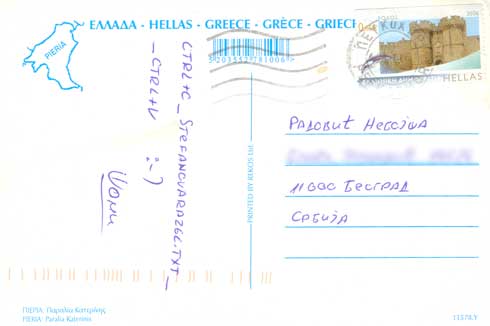 ΕΛΛΑΔΑ - HELLAS - GREECE - GRÈCE - GRIECH
PIERIA
5203552781006
2006
HELLAS
CTRL+C_STEFANGVARDZGC.TXT_
_CTRL+V :-)
PRINTED BY REKOS Ltd
Радовић Небојша
11000 Београд
Србија
ΠΙΕΡΙΑ: Παραλία Κατερίνης
PIERIA: Paralia Katerinis
11578.Y